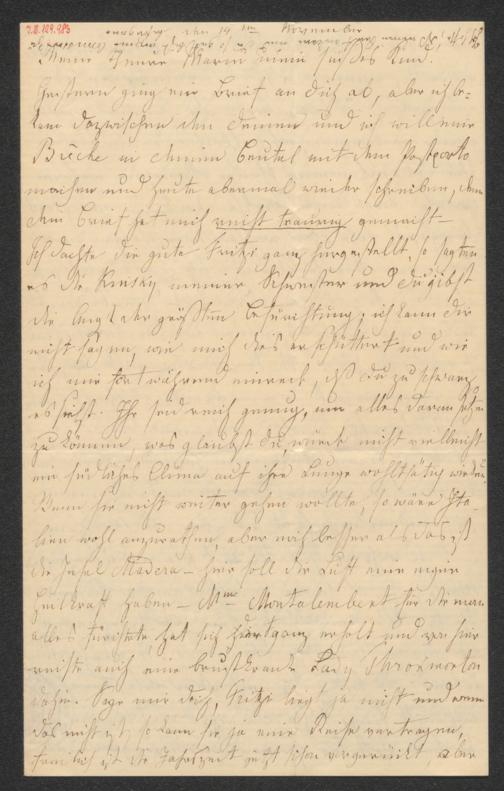 I.N. 129.983
den 14ten November
Meine theure Marie mein süßes Kind.
Gestern ging ein Brief an dich ab, aber ich be=
kam dazwischen den deinen und ich will eine
Brücke in deinen Beutel mit dem Postporto
machen und heute abermal wieder schreiben, denn
dein Brief hat mich recht traurig gemacht –
Ich dachte die gute Fritzi ganz hergestellt, so sagten
es die Kinsky meiner Schwester und du gibst
die Angst der größten Befürchtung, ich kann dir
nicht sagen, wie mich dies erschüttert und wie
ich mir fortwährend einrede, daß du zu schwarz
es siehst. Ihr seid reich genug, um alles daran setzen
zu können, was glaubst du, würde nicht vielleicht
ein südliches Clima auf ihre Lunge wohlthätig wirken?
Wenn sie nicht weiter gehen wollte, so wäre Ita=
lien wohl anzurathen, aber noch besser als das ist
die Insel Madera – hier soll die Luft eine eigene
Heilkraft haben – Mme Montalembert für die man
alles fürchtete, hat sich dort ganz erholt und von hier
reiste auch eine brustkranke Lady Throkmorton
dahin. Sage mir doch, Fritzi liegt ja nicht und wenn
das nicht ist, so kann sie ja eine Reise vertragen,
freilich ist die Jahrszeit jetzt schon vorgerückt, aber